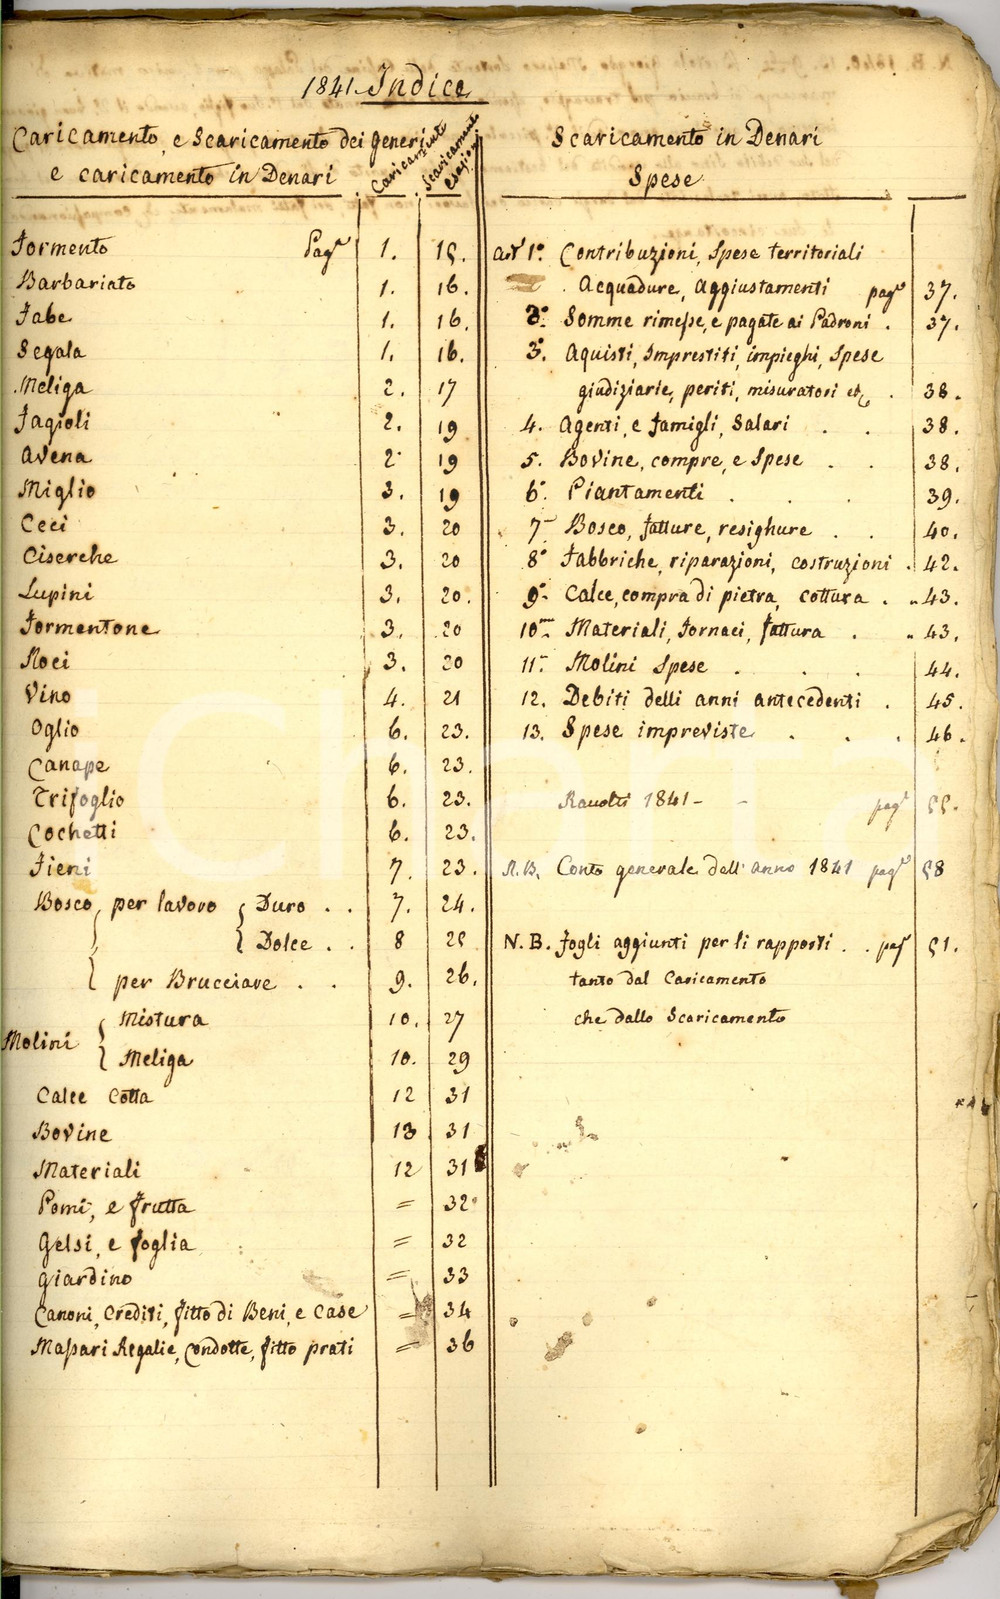 1841. Indice
Caricamento, e Scaricamento dei Generi
e caricamento in Denari
Caricamento
Scaricamento
esazioni
Formento Pag.e 1. 15.
Barbariato 1. 16.
Fabe 1. 16.
Segala 1. 16.
Meliga 2. 17
Fagioli 2. 19
Avena 2 19
Miglio 3. 19
Ceci 3. 20
Ciserche 3. 20
Lupini 3. 20.
Formentone 3. 20
Noci 3. 20
Vino 4. 21
Oglio 6. 23.
Canape 6. 23.
Trifoglio 6. 23.
Cochetti 6. 23.
Fieni 7. 23.
Bosco, per lavoro { Duro . . 7. 24.
Dolce . . 8 25
per Brucciare . . 9. 26.
Molini { Mistura 10. 27
Meliga 10. 29
Calce Cotta 12 31
Bovine 13 31
Materiali 12 31
Pomi, e frutta = 32.
Gelsi, e foglia = 32
Giardino = 33
Canoni, Crediti, fitto di Beni, e Case = 34
Massari Regalie, Condotte, fitto prati = 36
Scaricamento in Denari
Spese
Art 1.° Contribuzioni, Spese territoriali
Acquadure, aggiustamenti pag.e 37.
2.° Somme rimesse, e pagate ai Padroni . 37.
3.° Aquisti, Imprestiti, impieghi, Spese
giudiziarie, periti, misuratori etc. . 38.
4. Agenti, e famigli, Salari . . 38.
5. Bovine, compre, e Spese . . 38.
6.° Piantamenti . . . 39.
7 Bosco, fatture, resighure . . 40.
8.° Fabbriche, riparazioni, costruzioni . 42.
9.° Calce, compra di pietra, cottura . . 43.
10 Materiali, Fornaci, fattura . . 43.
11 Molini Spese . . . 44.
12. Debiti delli anni antecedenti . 45.
13. Spese impreviste . . . 46.
Racolti 1841 - - pag.e 55.
N.B. Conto generale dell' anno 1841 pag.e 58
N.B. Fogli aggiunti per li rapporti . . pag.e 51.
tanto dal Caricamento
che dallo Scaricamento